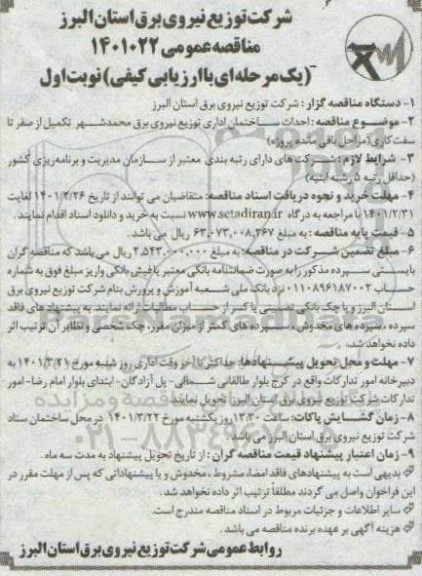 شرکت توزیع نیروی برق استان البرز
مناقصه عمومی ۱۴۰۱۰۲۲
(یک مرحله‌ای با ارزیابی کیفی) نوبت اول
۱- دستگاه مناقصه گزار: شرکت توزیع نیروی برق استان البرز
۲- موضوع مناقصه: احداث ساختمان اداری توزیع نیروی برق محمدشهر تکمیل از صفر تا
سفت کاری (مراحل باقی مانده پروژه)
۳- شرایط لازم: شرکت های دارای رتبه بندی معتبر از سازمان مدیریت و برنامه‌ریزی کشور
(حداقل رتبه ۵ رشته ابنیه)
۴- مهلت خرید و نحوه دریافت اسناد مناقصه: متقاضیان می توانند از تاریخ ۱۴۰۱/۲/۲۶ لغایت
۱۴۰۱/۲/۳۱ با مراجعه به درگاه www.setadiran.ir نسبت به خرید و دانلود اسناد اقدام نمایند.
۵- قیمت پایه مناقصه: به مبلغ ۶۳،۰۷۳،۰۰۸،۳۶۷ ریال می باشد.
۶- مبلغ تضمین شرکت در مناقصه: به مبلغ ۲،۵۴۲،۰۰۰،۰۰۰ ریال می باشد که مناقصه گران
بایستی سپرده مذکور را به صورت ضمانتنامه بانکی معتبر یا فیش بانکی واریز مبلغ فوق به شماره
حساب ۰۱۱۰۸۹۶۱۸۷۰۰۲ نزد بانک ملی شعبه آموزش و پرورش بنام شرکت توزیع نیروی برق
استان البرز و یا چک بانکی تضمینی یا کسر از حساب مطالبات ارائه نمایند. به پیشنهاد های فاقد
سپرده، سپرده های مخدوش، سپرده های کمتر از میزان مقرر، چک شخصی و نظایر آن ترتیب اثر
داده نخواهد شد.
۷- مهلت و محل تحویل پیشنهادها: حداکثر تا آخر وقت اداری روز شنبه مورخ ۱۴۰۱/۳/۲۱ به
دبیرخانه امور تدارکات واقع در کرج بلوار طالقانی شمالی- پل آزادگان- ابتدای بلوار امام رضا- امور
تدارکات شرکت توزیع نیروی برق استان البرز تحویل نمایند.
۸- زمان گشایش پاکات: ساعت ۱۳:۳۰ روز یکشنبه مورخ ۱۴۰۱/۳/۲۲ در محل ساختمان ستاد
شرکت توزیع نیروی برق استان البرز می باشد.
۹- زمان اعتبار پیشنهاد قیمت مناقصه گران: از تاریخ تحویل پیشنهاد به مدت سه ماه.
بدیهی است به پیشنهادهای فاقد امضا، مشروط، مخدوش و یا پیشنهاداتی که پس از مهلت مقرر در
این فراخوان واصل می گردند مطلقاً ترتیب اثر داده نخواهد شد.
سایر اطلاعات و جزئیات مربوط در اسناد مناقصه مندرج است.
هزینه آگهی بر عهده برنده مناقصه می باشد.
روابط عمومی شرکت توزیع نیروی برق استان البرز
۰۲۱-۸۸۳۴۹۶۷۰